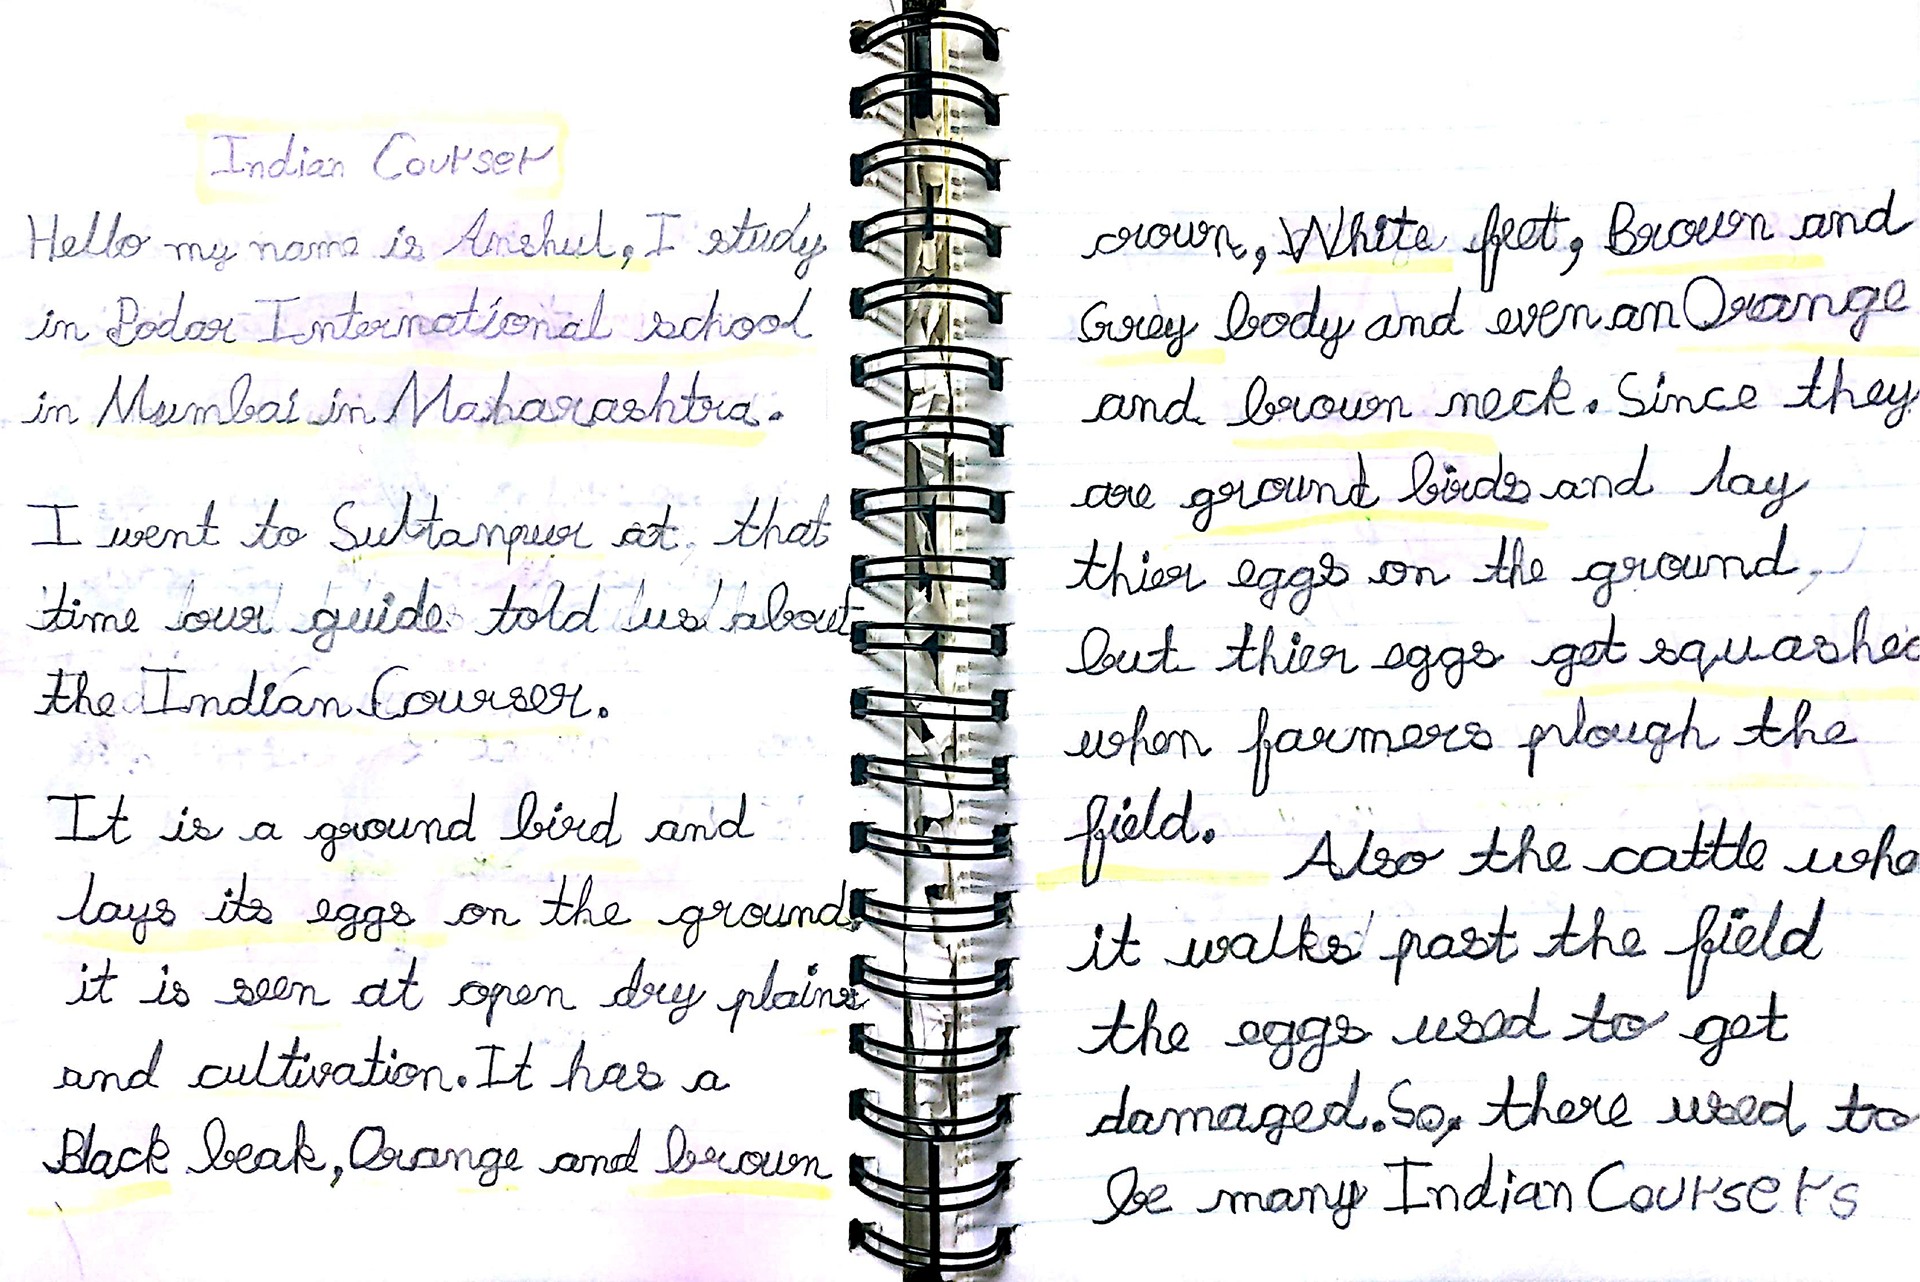 Indian Courser
Hello my name is Anshul, I study
in Podar International school
in Mumbai in Maharashtra.
I went to Sultanpur at that
time our guide told us about
the Indian Courser.
It is a ground bird and
lays its eggs on the ground.
it is seen at open dry plains
and cultivation. It has a
Black beak, Orange and brown
crown, White feet, Brown and
Grey body and even an Orange
and brown neck. Since they
are ground birds and lay
thier eggs on the ground,
but thier eggs get squashed
when farmers plough the
field.
Also the cattle who
it walks past the field
the eggs used to get
damaged. So, there used to
be many Indian Coursers